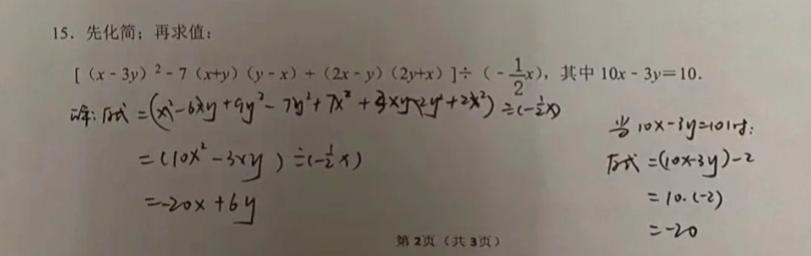 15．先化简；再求值：
[（x - 3y）² - 7（x+y）（y - x）+（2x - y）（2y+x）]÷（-\frac{1}{2}x），其中 10x - 3y＝10.
解：原式 =(x²-6xy+9y²-7y²+7x²+3xy-2y²+2x²)÷(-\frac{1}{2}x)
=(10x²-3xy)÷(-\frac{1}{2}x)
=-20x+6y
当10x-3y=10时：
原式=(10x-3y)-2
=10·(-2)
=-20
第2页（共3页）